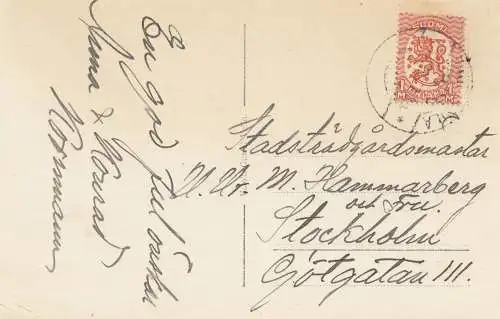 En god Jul önskar
Anna & Konrad
Normann
SUOMI
Stadsträdgårdsmästar
M. Hammarberg
och Fru.
Stockholm
Götgatan 111.